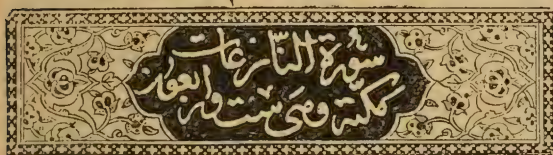 سورة النازعات
مكية وهي ست واربعون